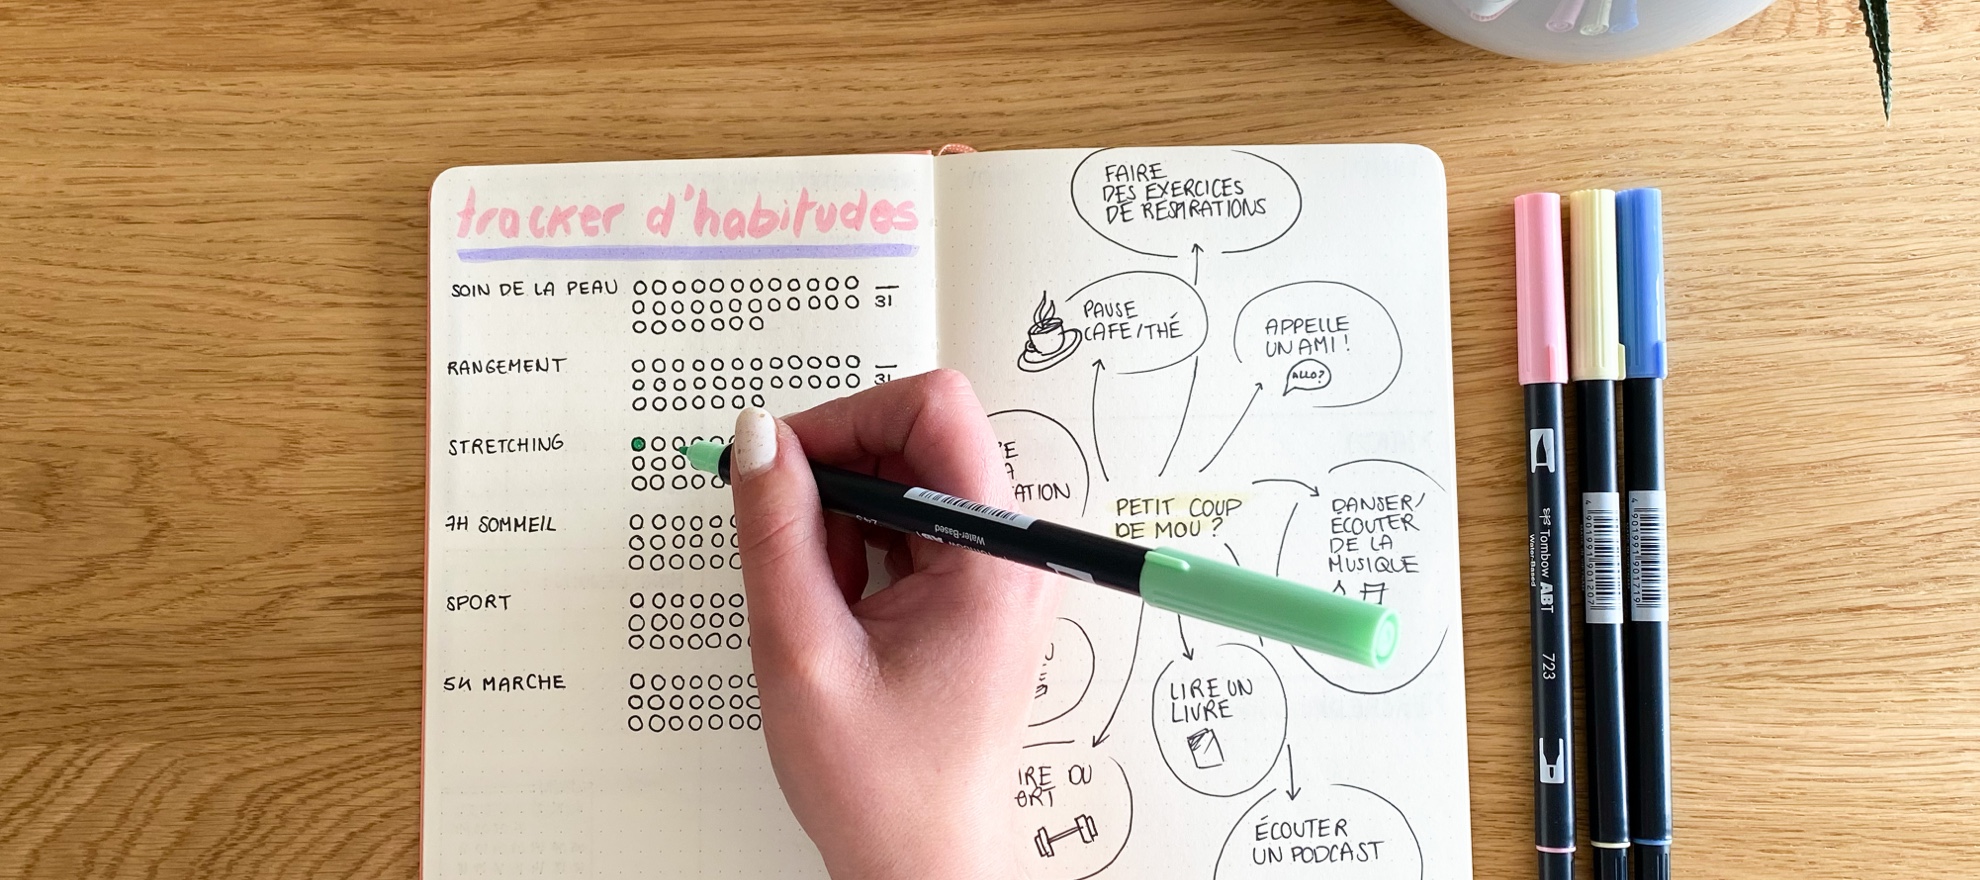 tracker d'habitudes
SOIN DE LA PEAU
31
RANGEMENT
31
STRETCHING
7H SOMMEIL
SPORT
5K MARCHE
FAIRE
DES EXERCICES
DE RESPIRATIONS
PAUSE
CAFE/THÉ
APPELLE
UN AMI !
ALLO?
ATION
PETIT COUP
DE MOU ?
DANSER/
ÉCOUTER
DE LA
MUSIQUE
LIRE UN
LIVRE
IRE DU
ORT
ÉCOUTER
UN PODCAST
Water-Based
Tombow ABT
Water-Based
723
4 901991 901207
4 901991 901719